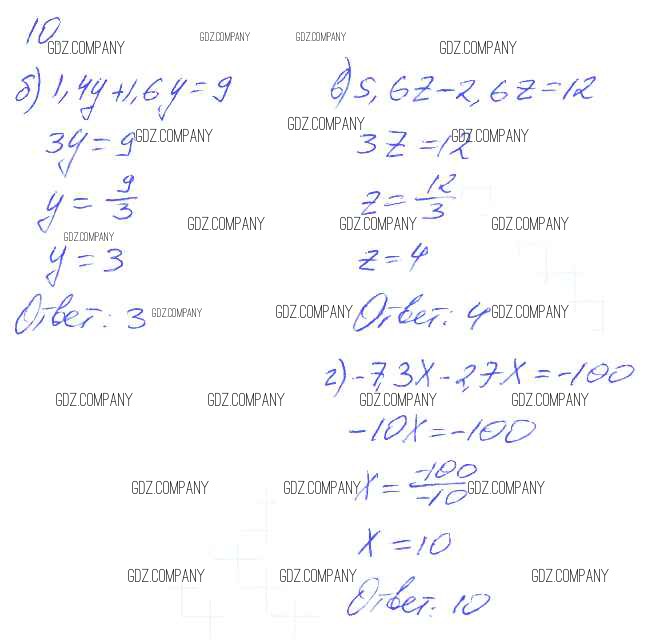 10
GDZ.COMPANY GDZ.COMPANY GDZ.COMPANY GDZ.COMPANY
б) 1,4y+1,6y=9
3y=9
y=9/3
y=3
Ответ: 3
в) 5,6z-2,6z=12
3z=12
z=12/3
z=4
Ответ: 4
г) -7,3x-2,7x=-100
-10x=-100
x=-100/-10
x=10
Ответ: 10
GDZ.COMPANY GDZ.COMPANY GDZ.COMPANY
GDZ.COMPANY GDZ.COMPANY GDZ.COMPANY GDZ.COMPANY
GDZ.COMPANY GDZ.COMPANY GDZ.COMPANY
GDZ.COMPANY GDZ.COMPANY GDZ.COMPANY GDZ.COMPANY
GDZ.COMPANY GDZ.COMPANY GDZ.COMPANY
GDZ.COMPANY GDZ.COMPANY GDZ.COMPANY